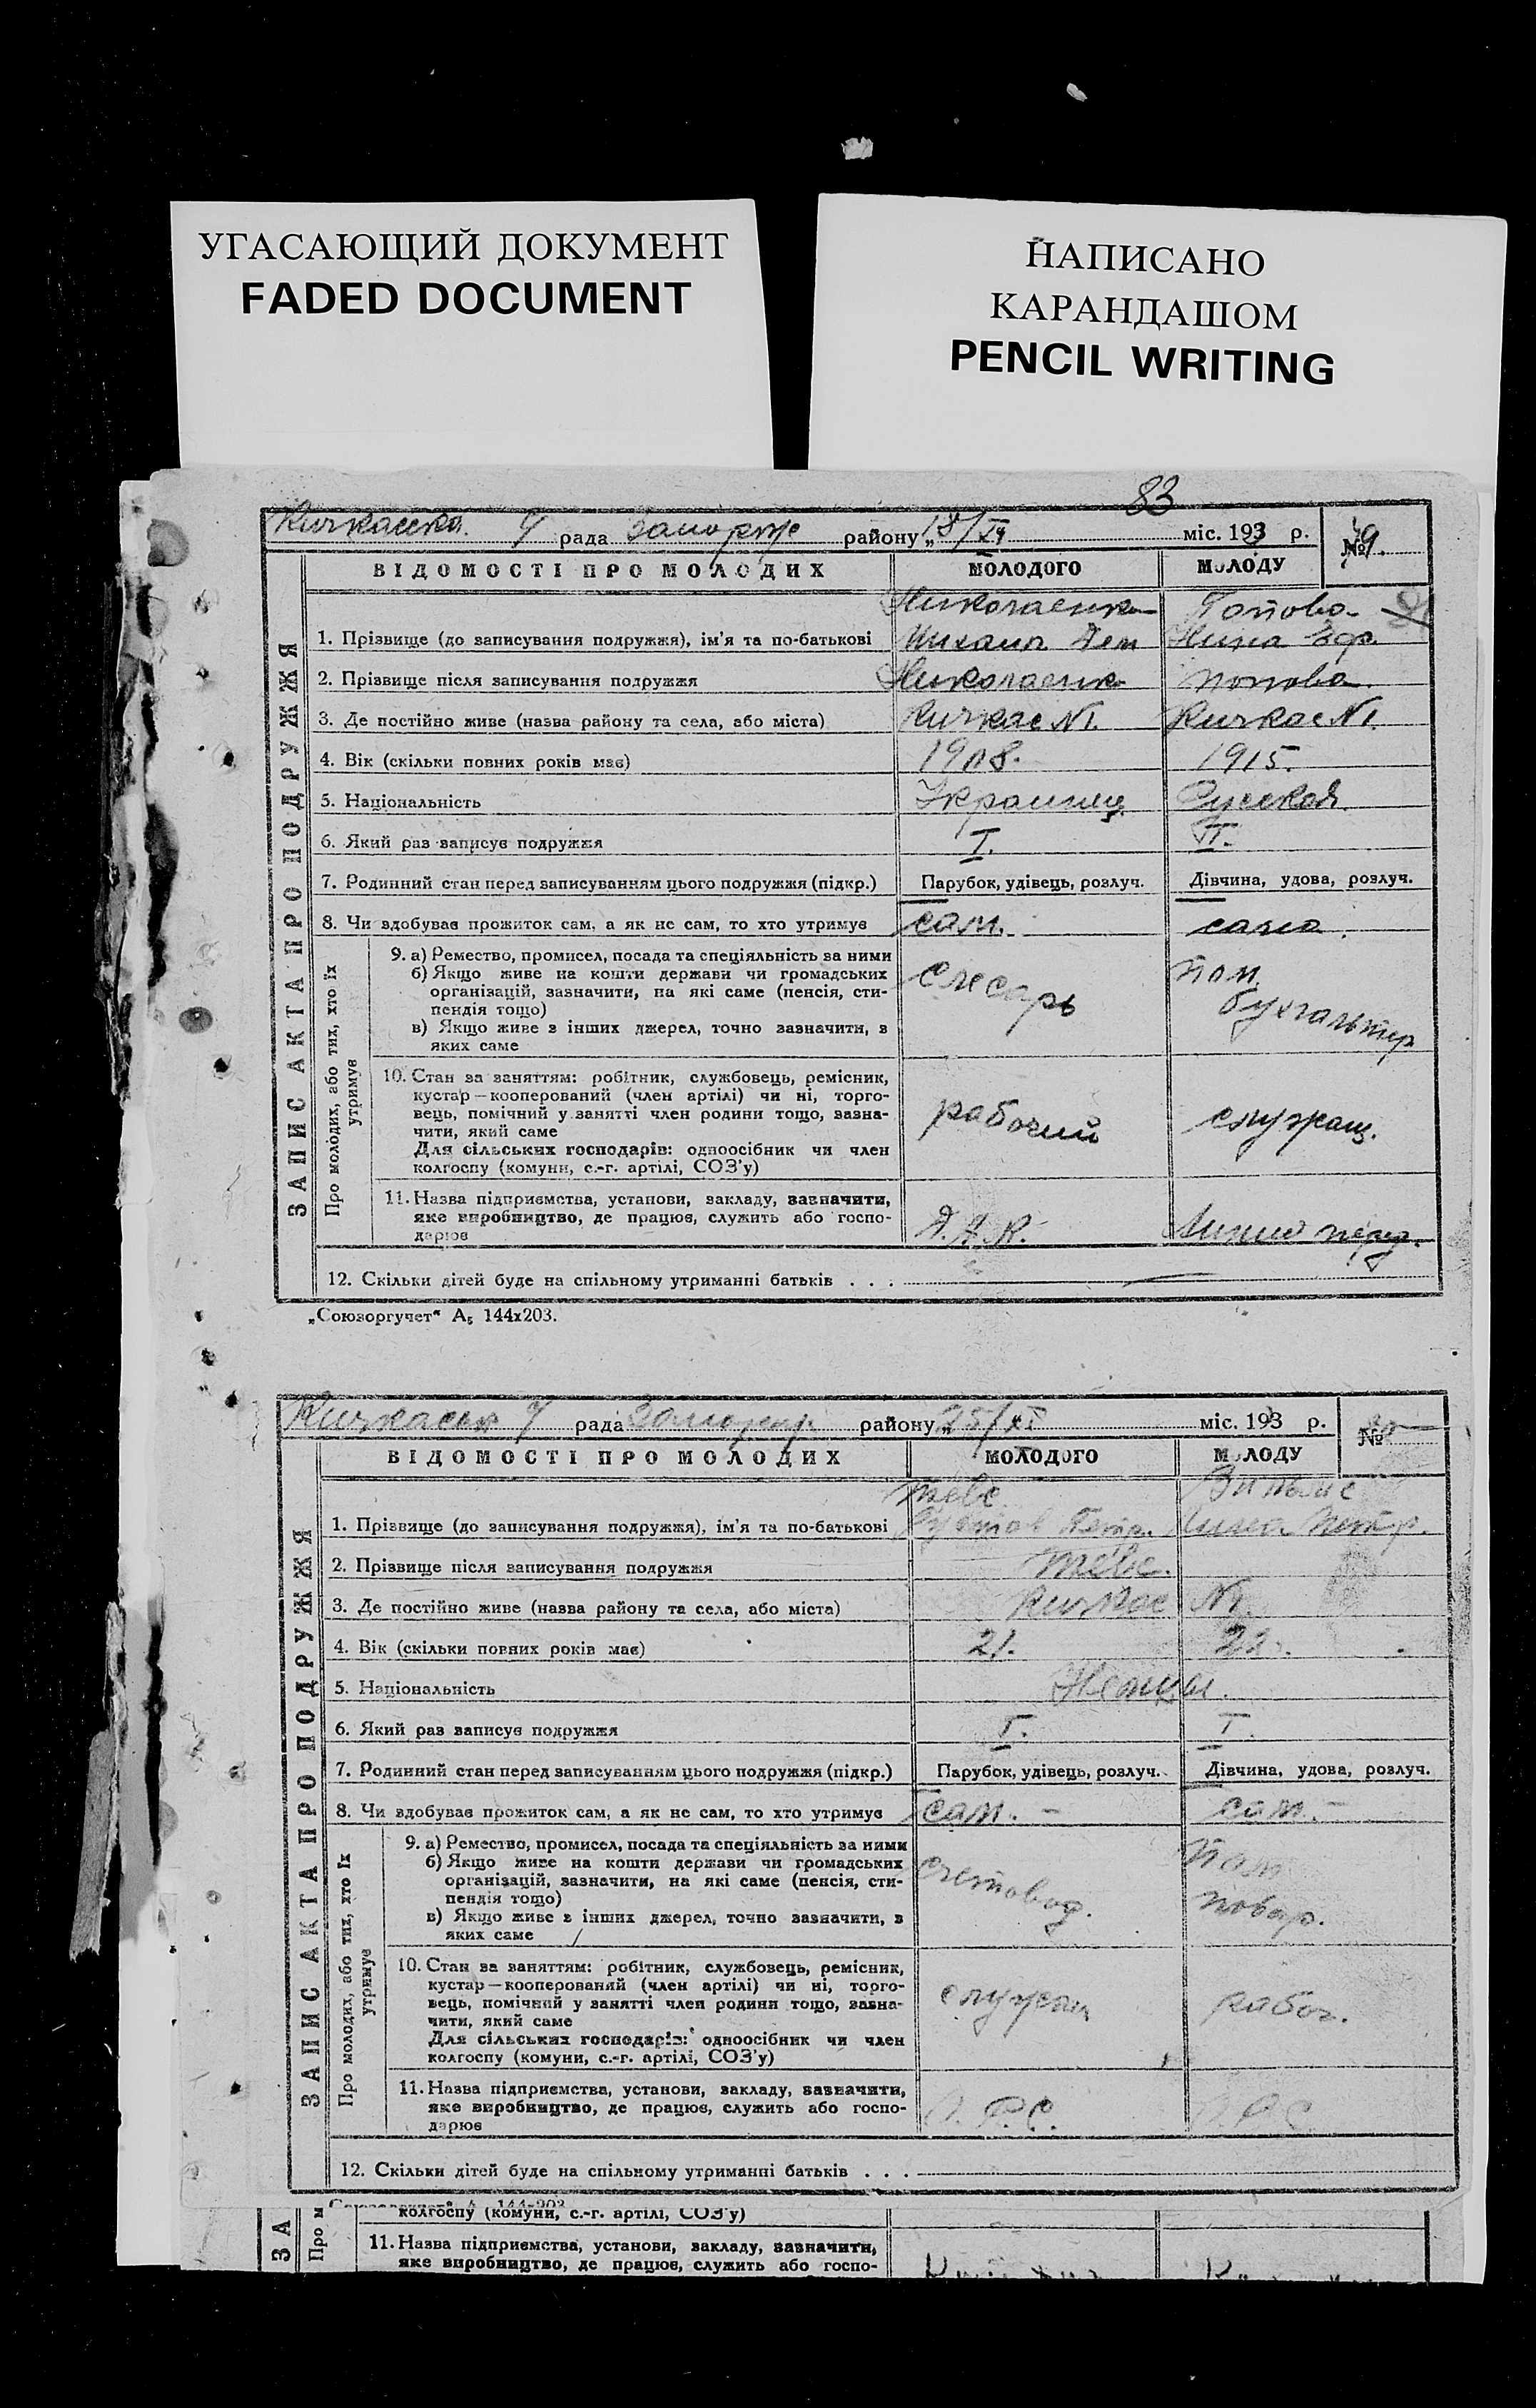 УГАСАЮЩИЙ ДОКУМЕНТ
FADED DOCUMENT
НАПИСАНО
КАРАНДАШОМ
PENCIL WRITING
83
рада Запориж району „18/XI міс. 193 р. № 79.
ВІДОМОСТІ ПРО МОЛОДИХ МОЛОДОГО МОЛОДУ
ЗАПИС АКТА ПРО ПОДРУЖЖЯ
Николаенко Попова
1. Прізвище (до записування подружжя), ім'я та по-батькові Михаил Дем Нина
2. Прізвище після записування подружжя Николаенко Попова
3. Де постійно живе (назва району та села, або міста) Кичкас №1. Кичкас №1.
4. Вік (скільки повних років має) 1908. 1915.
5. Національність Украинец Русская
6. Який раз записує подружжя I. II.
7. Родинний стан перед записуванням цього подружжя (підкр.) Парубок, удівець, розлуч. Дівчина, удова, розлуч.
8. Чи здобуває прожиток сам, а як не сам, то хто утримує сам. сама.
Про молодих, або тих, хто їх утримує
9. а) Ремество, промисел, посада та спеціяльність за ними
б) Якщо живе на кошти держави чи громадських
організацій, зазначити, на які саме (пенсія, сти-
пендія тощо)
в) Якщо живе з інших джерел, точно зазначити, з
яких саме
слесарь пом. бухгалтер
10. Стан за заняттям: робітник, службовець, ремісник,
кустар—кооперований (член артілі) чи ні, торго-
вець, помічний у занятті член родини тощо, зазна-
чити, який саме
Для сільських господарів: одноосібник чи член
колгоспу (комуни, с.-г. артілі, СОЗ'у)
рабочий служащ.
11. Назва підприємства, установи, закладу, зазначити,
яке виробництво, де працює, служить або госпо-
дарює
12. Скільки дітей буде на спільному утриманні батьків . . .
„Союзоргучет“ А₅ 144х203.
рада району „25/XI міс. 193 р. №
ВІДОМОСТІ ПРО МОЛОДИХ МОЛОДОГО МОЛОДУ
ЗАПИС АКТА ПРО ПОДРУЖЖЯ
Тевс Вильмс
1. Прізвище (до записування подружжя), ім'я та по-батькові Густав Петр.
2. Прізвище після записування подружжя Тевс.
3. Де постійно живе (назва району та села, або міста) Кичкас №1.
4. Вік (скільки повних років має) 21. 22.
5. Національність Немцы.
6. Який раз записує подружжя I. I.
7. Родинний стан перед записуванням цього подружжя (підкр.) Парубок, удівець, розлуч. Дівчина, удова, розлуч.
8. Чи здобуває прожиток сам, а як не сам, то хто утримує сам. – сам. –
Про молодих, або тих, хто їх утримує
9. а) Ремество, промисел, посада та спеціяльність за ними
б) Якщо живе на кошти держави чи громадських
організацій, зазначити, на які саме (пенсія, сти-
пендія тощо)
в) Якщо живе з інших джерел, точно зазначити, з
яких саме
счетовод. пом повар.
10. Стан за заняттям: робітник, службовець, ремісник,
кустар—кооперований (член артілі) чи ні, торго-
вець, помічний у занятті член родини тощо, зазна-
чити, який саме
Для сільських господарів: одноосібник чи член
колгоспу (комуни, с.-г. артілі, СОЗ'у)
служащ рабоч.
11. Назва підприємства, установи, закладу, зазначити,
яке виробництво, де працює, служить або госпо-
дарює
12. Скільки дітей буде на спільному утриманні батьків . . .
колгоспу (комуни, с.-г. артілі, СОЗ'у)
11. Назва підприємства, установи, закладу, зазначити,
яке виробництво, де працює, служить або госпо-